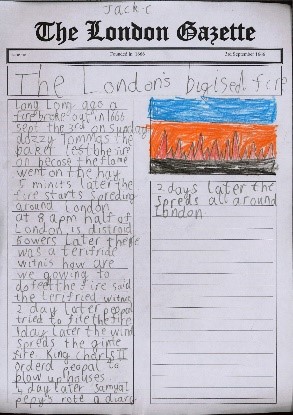 Jack.C
The London Gazette
Founded in 1666
2nd September 1666
The London's bigised fire
long long ago a
fire broke out in 1666
sept the 3rd on sunday
dozzy Tommas the
baker left the fire
on becose the flame
went on the hay
5 minits later the
fire starts spreding
around London
at 8 a pm half of
London is distroid
Bowers Later there
was a terifride
witnis how are
we gowing to
dofeet the fire said
the terrifried witnis
2 day later peopel
tried to file the fire
1 day later the wind
spreds the ginte
fire King charls II
orderd peopal to
plow up houses
4 day later samyal
pepys rote a diary
2 days later the
spreds all around
London